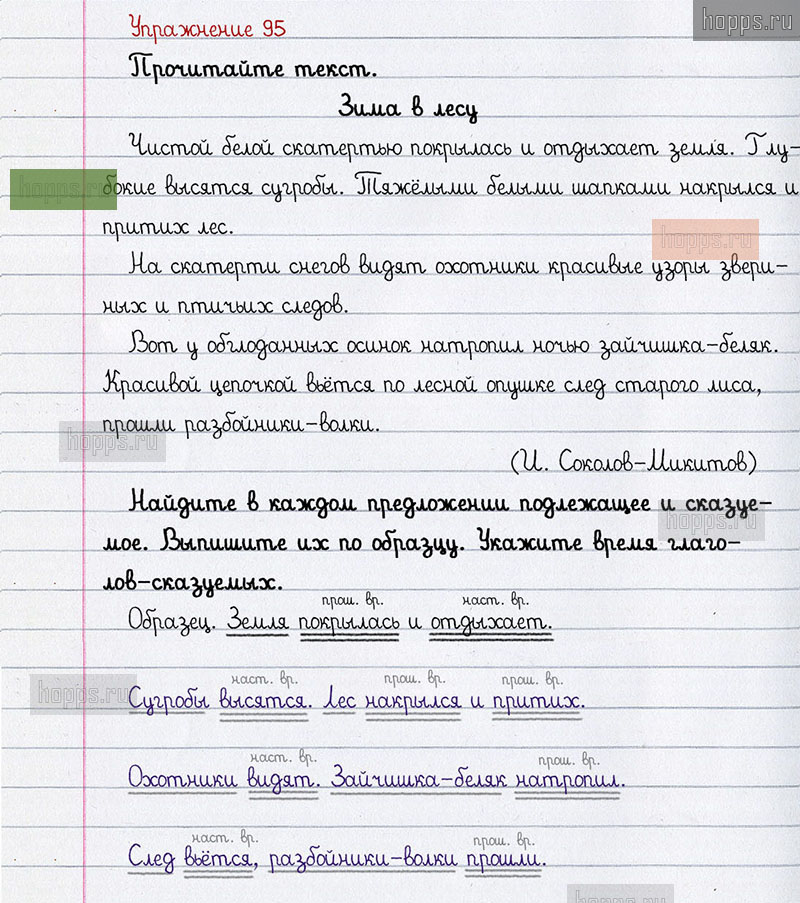 hopps.ru
Упражнение 95
Прочитайте текст.
Зима в лесу
Чистой белой скатертью покрылась и отдыхает земля. Глу-
hopps.ru
бокие высятся сугробы. Тяжёлыми белыми шапками накрылся и
притих лес.
hopps.ru
На скатерти снегов видят охотники красивые узоры звери-
ных и птичьих следов.
Вот у обглоданных осинок натропил ночью зайчишка-беляк.
Красивой цепочкой вьётся по лесной опушке след старого лиса,
прошли разбойники-волки.
hopps.ru
(И. Соколов-Микитов)
Найдите в каждом предложении подлежащее и сказуе-
hopps.ru
мое. Выпишите их по образцу. Укажите время глаго-
лов-сказуемых.
прош. вр. наст. вр.
Образец. Земля покрылась и отдыхает.
наст. вр. прош. вр. прош. вр.
hopps.ru
Сугробы высятся. Лес накрылся и притих.
наст. вр. прош. вр.
Охотники видят. Зайчишка-беляк натропил.
наст. вр. прош. вр.
След вьётся, разбойники-волки прошли.
hopps.ru